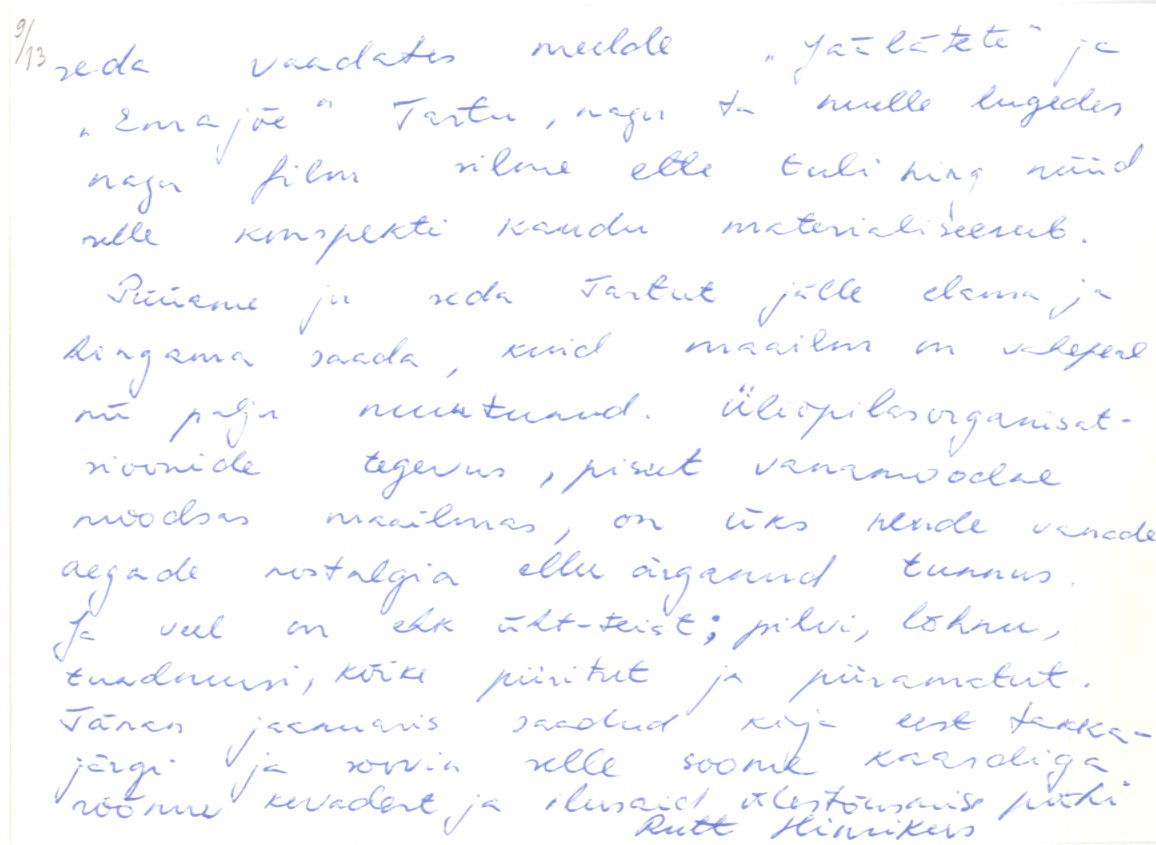 9/13
seda vaadates meelde "Jäälätete" ja
„Emajõe" Tartu, nagu ta mulle lugedes
nagu film silme ette tuli ning nüüd
selle konspekti kaudu materialiseerub.
Püüame ju seda Tartut jälle elama ja
hingama saada, kuid maailm on vahepeal
nii palju muutunud. Üliõpilasorganisat-
sioonide tegevus, pisut vanamoodne
moodsas maailmas, on üks nende vanade
aegade nostalgia ellu ärganud tunnus.
Ja veel on ehk üht-teist; pilvi, lõhnu,
tundmusi, kõike piiritut ja piiramatut.
Tänan jaanuaris saadud kirja eest takka-
järgi ja soovin selle soome kaardiga
rõõmu kevadest ja ilusaid ülestõusmise pühi
Rutt Hinrikus